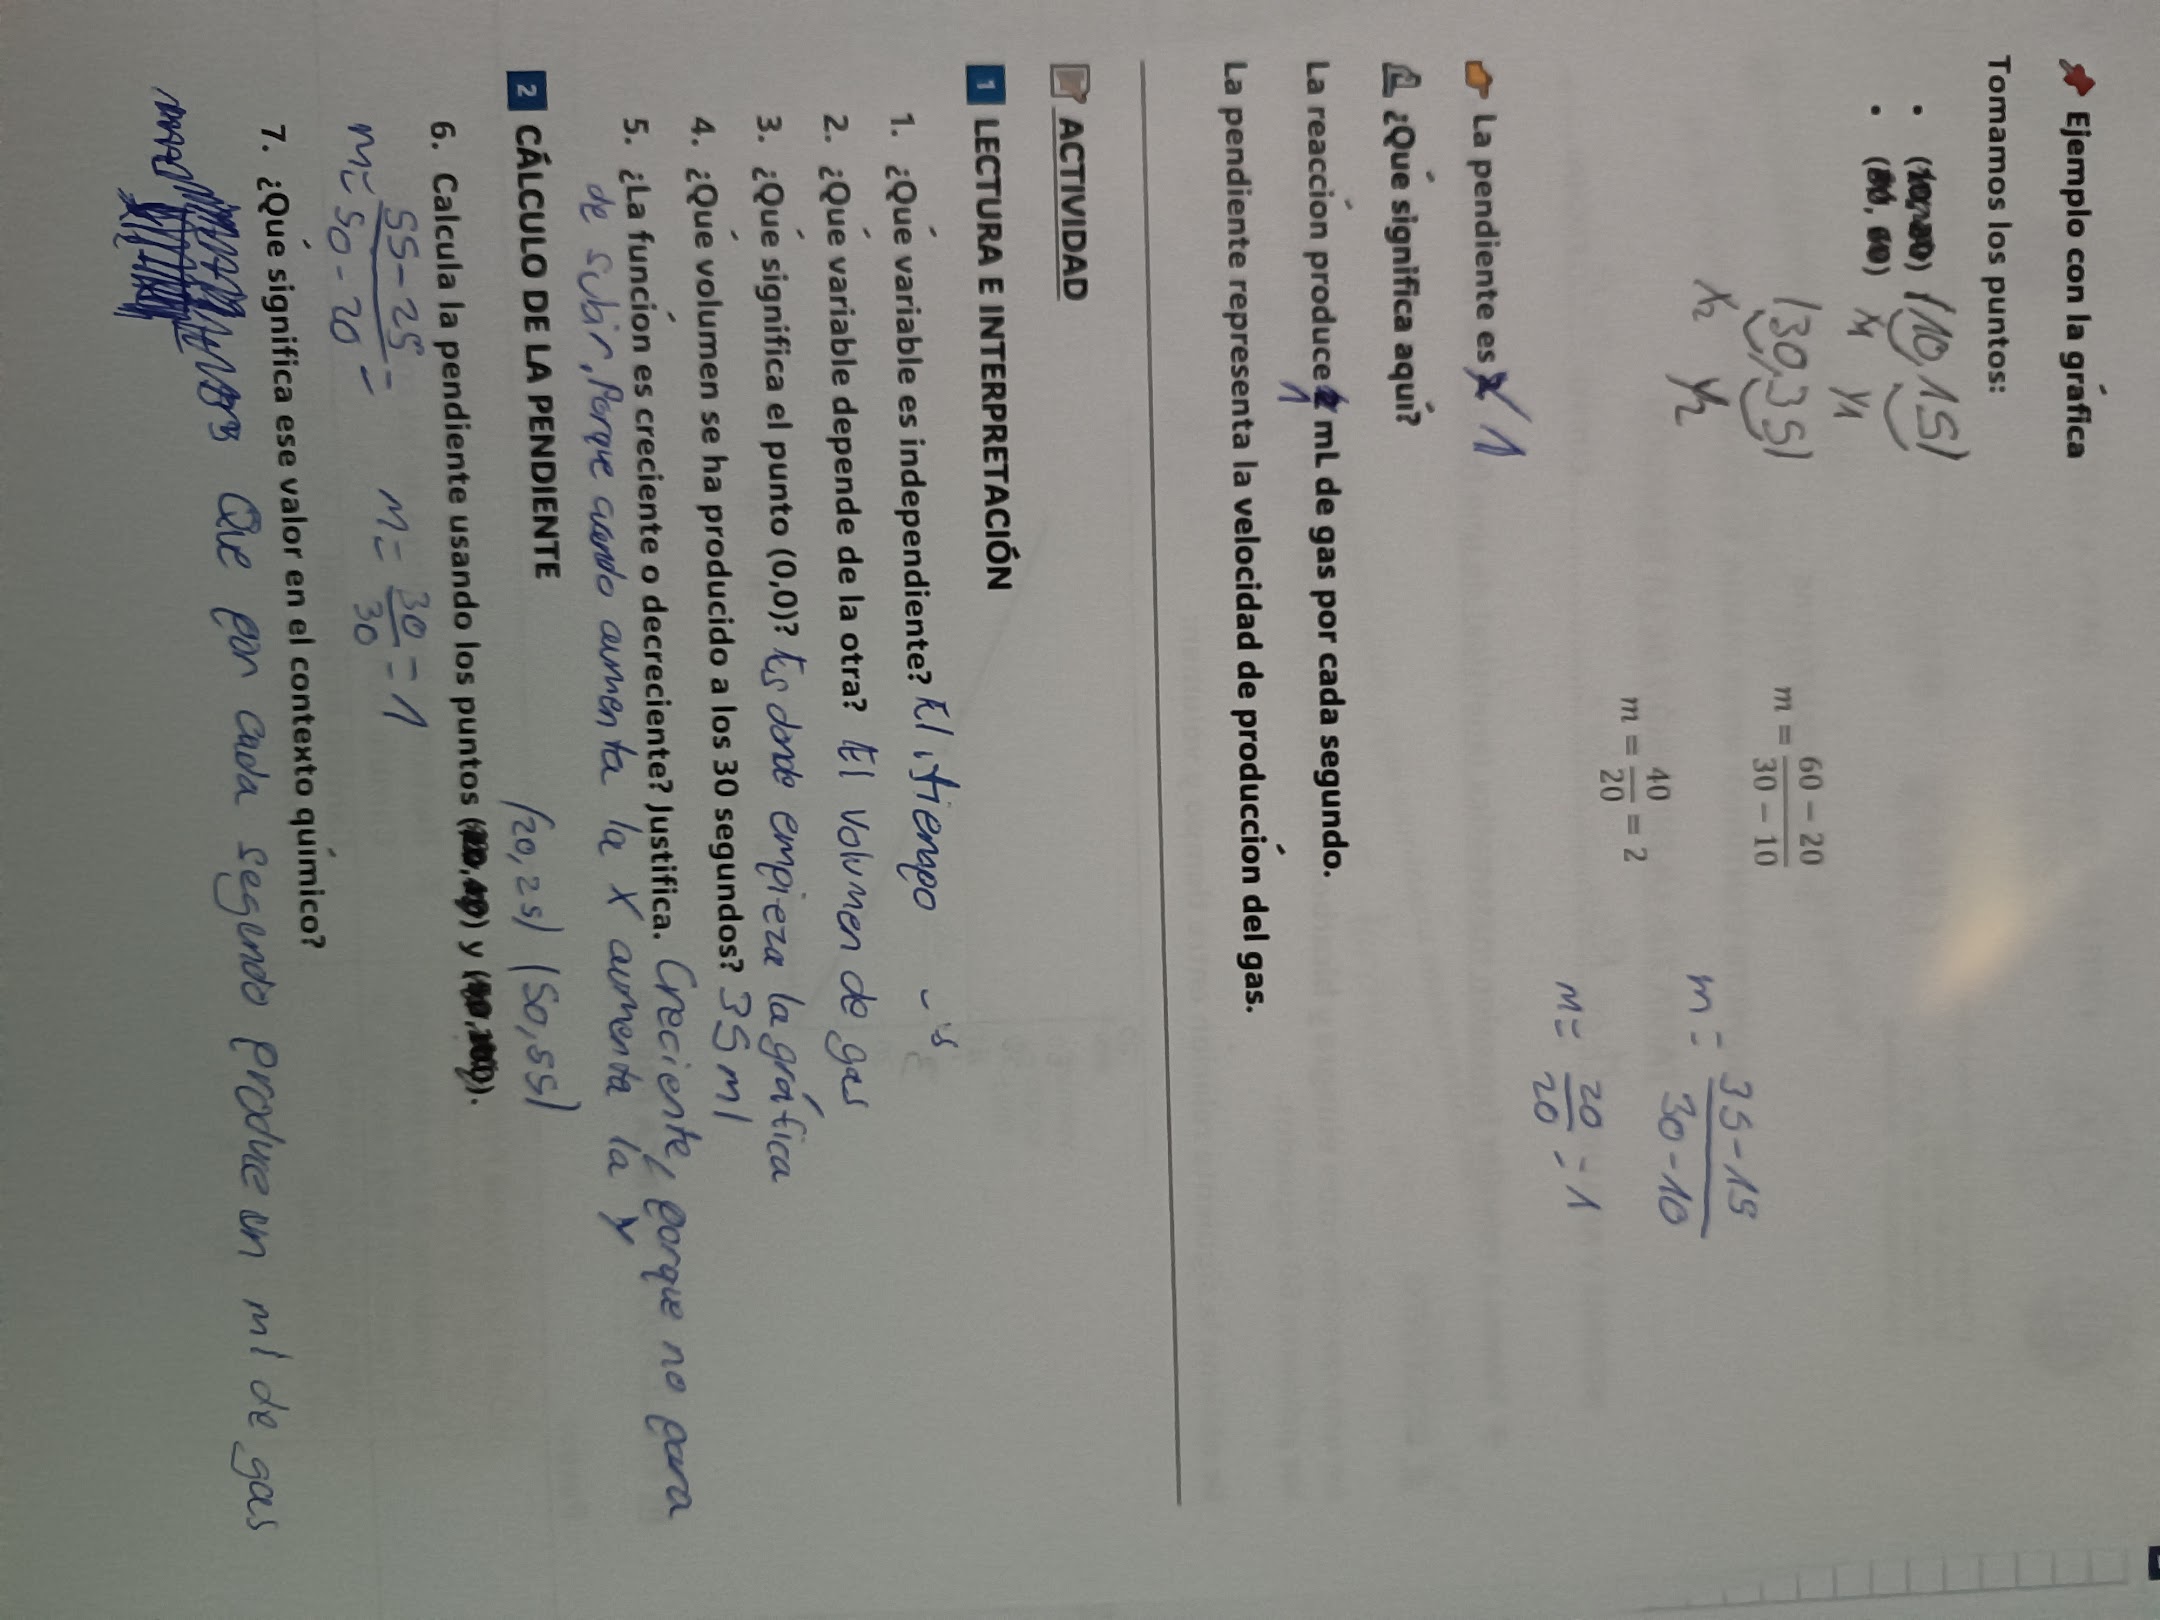 Ejemplo con la gráfica
Tomamos los puntos:
(10,15)
x1 y1
(30,35)
x2 y2
m = 60 − 20
30 − 10
m = 40
20 = 2
m = 35-15
30-10
m = 20
20 = 1
La pendiente es 1
¿Qué significa aquí?
La reacción produce 1 mL de gas por cada segundo.
La pendiente representa la velocidad de producción del gas.
ACTIVIDAD
1 LECTURA E INTERPRETACIÓN
1. ¿Qué variable es independiente? El tiempo
2. ¿Qué variable depende de la otra? El volumen de gas
3. ¿Qué significa el punto (0,0)? Es donde empieza la gráfica
4. ¿Qué volumen se ha producido a los 30 segundos? 35 ml
5. ¿La función es creciente o decreciente? Justifica. Creciente, porque no para
de subir, porque cuando aumenta la x aumenta la y
2 CÁLCULO DE LA PENDIENTE
(20,25) (50,55)
6. Calcula la pendiente usando los puntos y
m= 55-25 =
50-20
m= 30 = 1
30
7. ¿Qué significa ese valor en el contexto químico?
Que por cada segundo produce un ml de gas